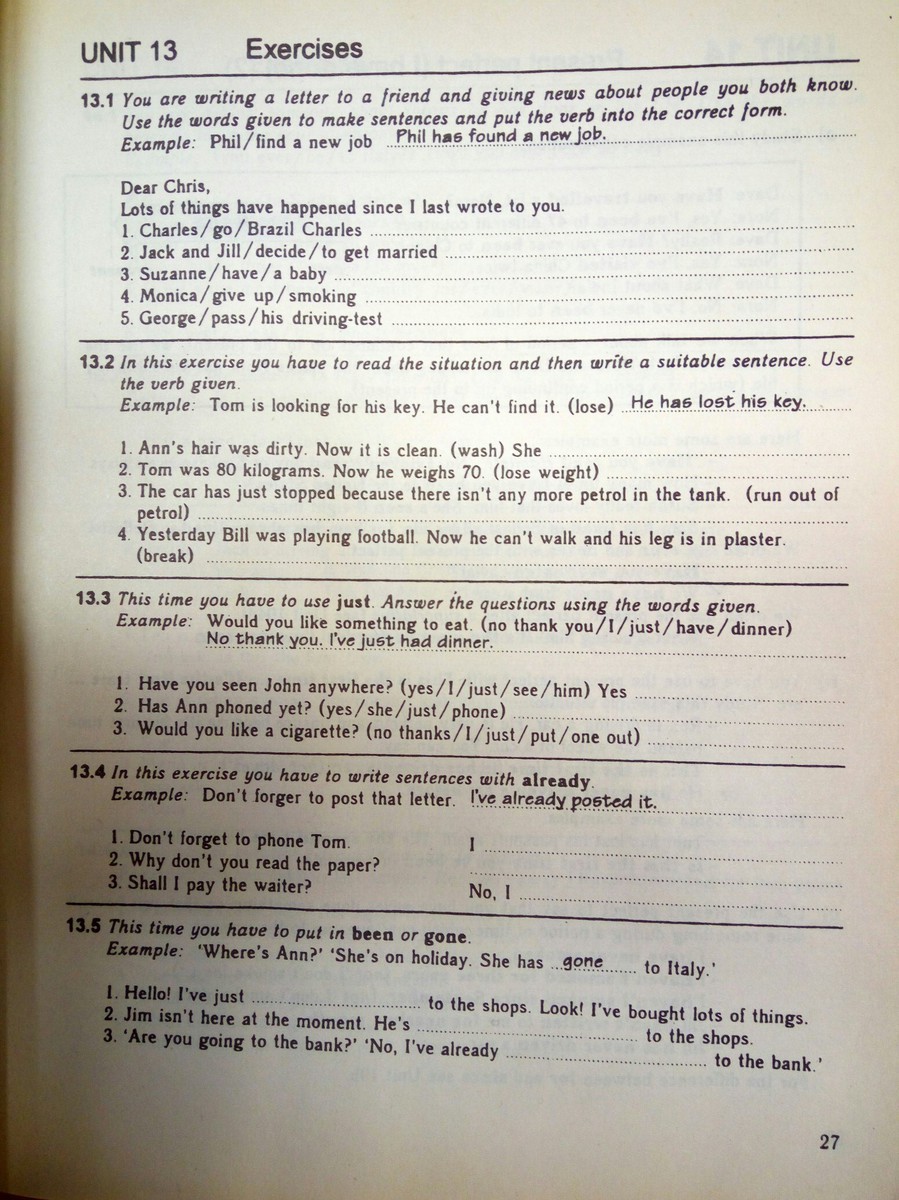 UNIT 13 Exercises
13.1 You are writing a letter to a friend and giving news about people you both know.
Use the words given to make sentences and put the verb into the correct form.
Example: Phil/find a new job Phil has found a new job.
Dear Chris,
Lots of things have happened since I last wrote to you.
1. Charles/go/Brazil Charles
2. Jack and Jill/decide/to get married
3. Suzanne/have/a baby
4. Monica/give up/smoking
5. George/pass/his driving-test
13.2 In this exercise you have to read the situation and then write a suitable sentence. Use
the verb given.
Example: Tom is looking for his key. He can't find it. (lose) He has lost his key.
1. Ann's hair was dirty. Now it is clean. (wash) She
2. Tom was 80 kilograms. Now he weighs 70. (lose weight)
3. The car has just stopped because there isn't any more petrol in the tank. (run out of
petrol)
4. Yesterday Bill was playing football. Now he can't walk and his leg is in plaster.
(break)
13.3 This time you have to use just. Answer the questions using the words given.
Example: Would you like something to eat. (no thank you/I/just/have/dinner)
No thank you. I've just had dinner.
1. Have you seen John anywhere? (yes/I/just/see/him) Yes
2. Has Ann phoned yet? (yes/she/just/phone)
3. Would you like a cigarette? (no thanks/I/just/put/one out)
13.4 In this exercise you have to write sentences with already.
Example: Don't forger to post that letter. I've already posted it.
1. Don't forget to phone Tom. I
2. Why don't you read the paper?
3. Shall I pay the waiter? No, I
13.5 This time you have to put in been or gone.
Example: 'Where's Ann?' 'She's on holiday. She has gone to Italy.'
1. Hello! I've just to the shops. Look! I've bought lots of things.
2. Jim isn't here at the moment. He's to the shops.
3. 'Are you going to the bank?' 'No, I've already to the bank.'
27